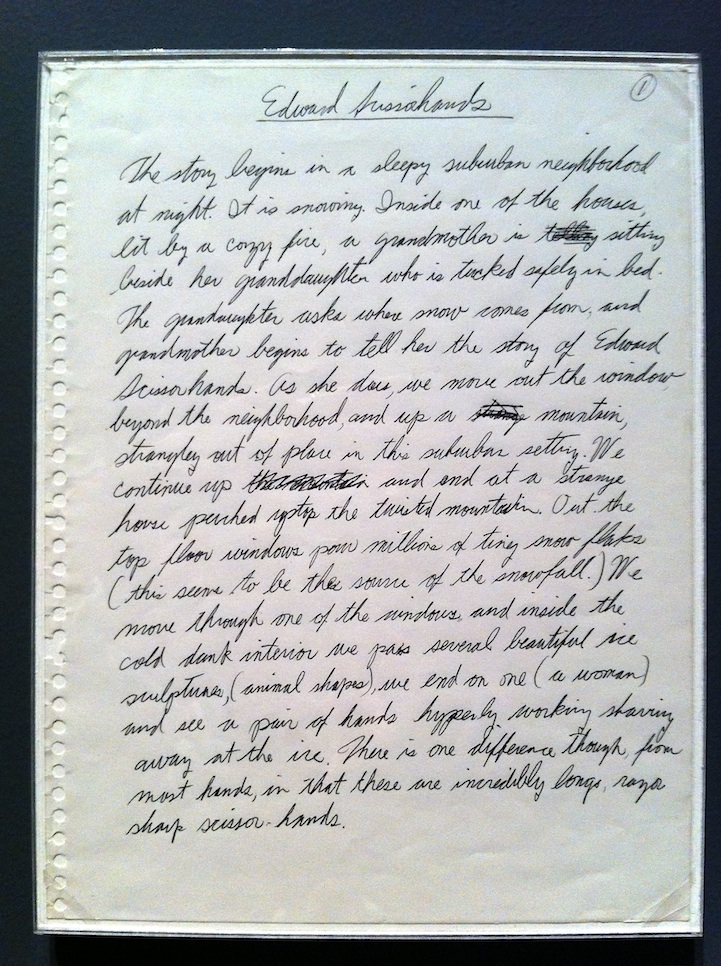 Edward Scissorhands
1
The story begins in a sleepy suburban neighborhood
at night. It is snowing. Inside one of the houses,
lit by a cozy fire, a grandmother is telling sitting
beside her granddaughter who is tucked safely in bed.
The grandaughter asks where snow comes from, and
grandmother begins to tell her the story of Edward
Scissorhands. As she does, we move out the window
beyond the neighborhood, and up a strange mountain,
strangley out of place in this suburban setting. We
continue up the mountain and end at a strange
house perched upstop the twisted mountain. Out the
top floor windows pour millions of tiny snow flakes
(this seems to be the source of the snowfall.) We
move through one of the windows, and inside the
cold dank interior we pass several beautiful ice
sculptures, (animal shapes), we end on one (a woman)
and see a pair of hands hyperly working shaving
away at the ice. There is one difference though, from
most hands, in that these are incredibly longs, razor
sharp scissor-hands.